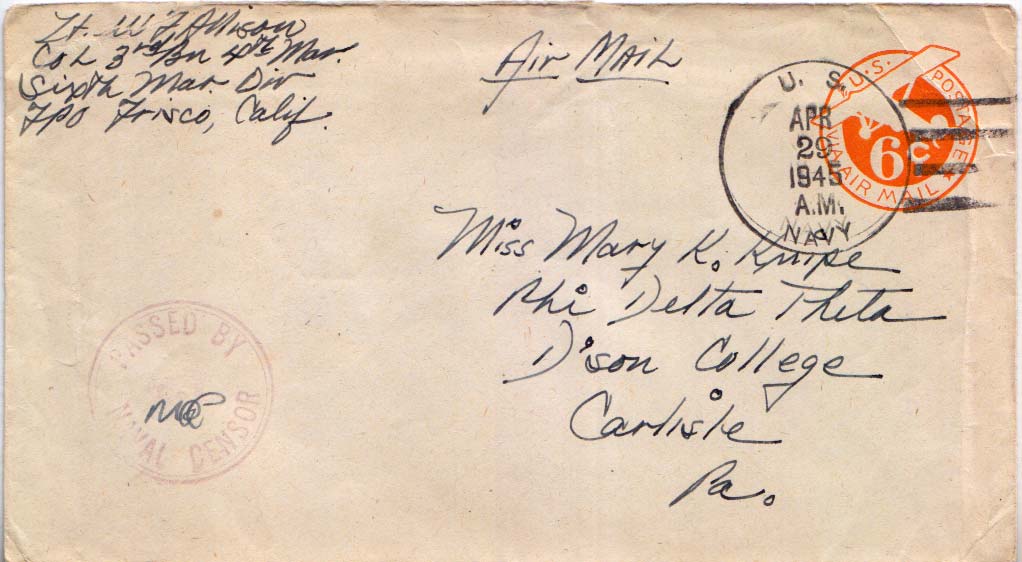 Lt. W F. Allison
Co L 3rd Bn 4th Mar.
Sixth Mar. Div
FPO Frisco, Calif.
Air Mail
U.S. POSTAGE
6c
VIA AIR MAIL
U. S.
APR
29
1945
A.M.
NAVY
Miss Mary K. Knipe
Phi Delta Theta
D'son College
Carlisle
Pa.
PASSED BY
NAVAL CENSOR